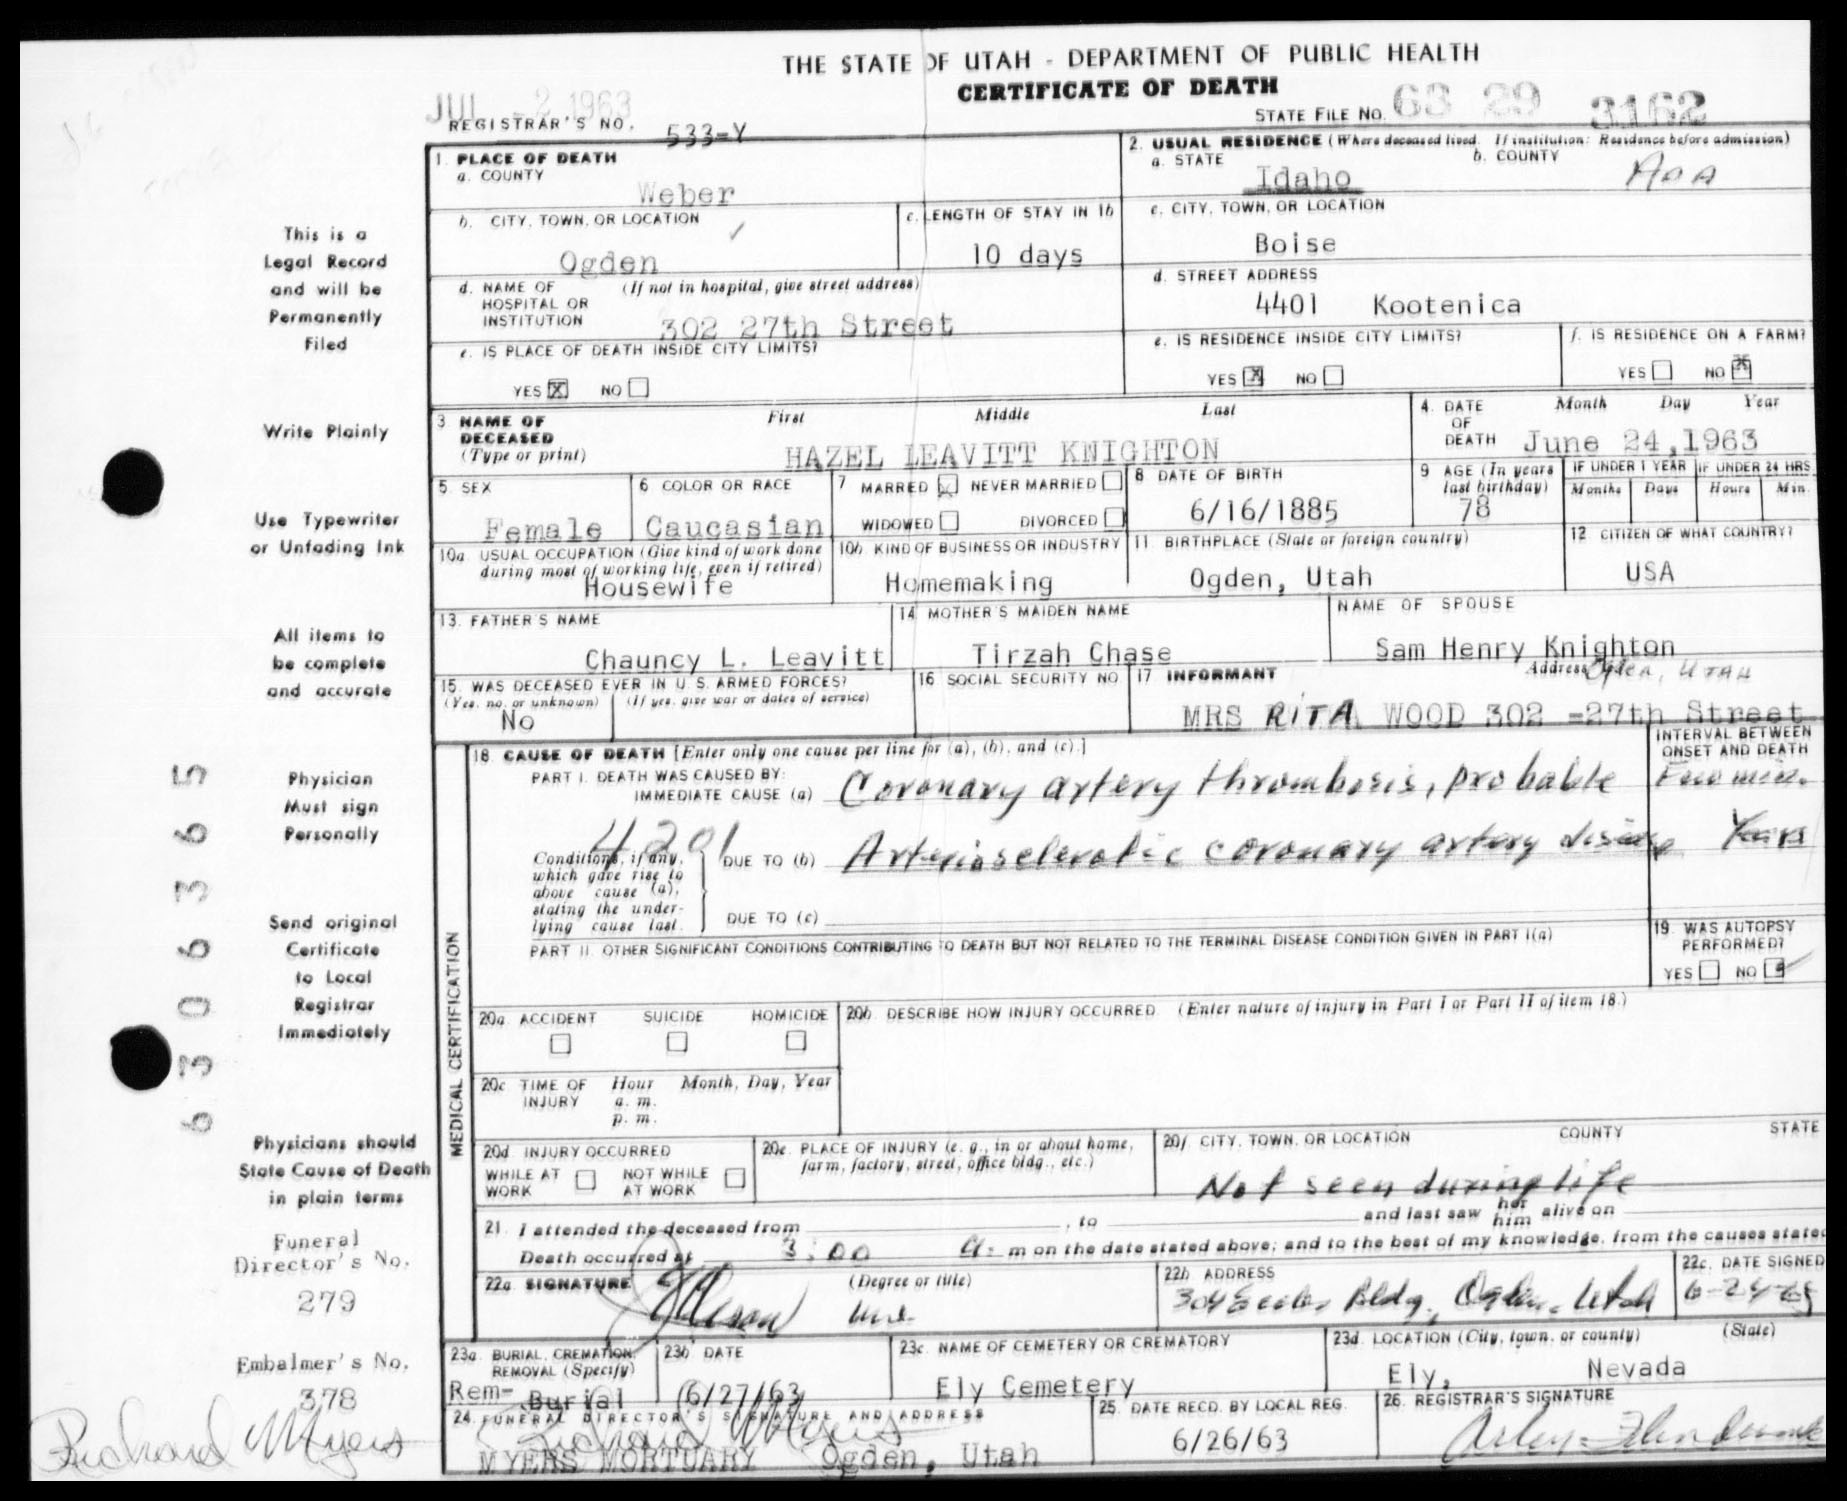 THE STATE OF UTAH - DEPARTMENT OF PUBLIC HEALTH
CERTIFICATE OF DEATH
JUL -2 1963
REGISTRAR'S NO. 533-Y
STATE FILE NO. 63 29 3162
1. PLACE OF DEATH
a. COUNTY
Weber
2. USUAL RESIDENCE (Where deceased lived. If institution: Residence before admission)
a. STATE
Idaho
b. COUNTY
ADA
b. CITY, TOWN, OR LOCATION
Ogden
c. LENGTH OF STAY IN 1b
10 days
c. CITY, TOWN, OR LOCATION
Boise
d. NAME OF HOSPITAL OR INSTITUTION
(If not in hospital, give street address)
302 27th Street
d. STREET ADDRESS
4401 Kootenica
e. IS PLACE OF DEATH INSIDE CITY LIMITS?
YES X NO
e. IS RESIDENCE INSIDE CITY LIMITS?
YES X NO
f. IS RESIDENCE ON A FARM?
YES NO X
3 NAME OF DECEASED
(Type or print)
First Middle Last
HAZEL LEAVITT KNIGHTON
4. DATE OF DEATH
Month Day Year
June 24,1963
5. SEX
Female
6 COLOR OR RACE
Caucasian
7 MARRED X NEVER MARRIED
WIDOWED DIVORCED
8 DATE OF BIRTH
6/16/1885
9 AGE (In years last birthday)
78
IF UNDER 1 YEAR
Months Days
IF UNDER 24 HRS.
Hours Min.
10a. USUAL OCCUPATION (Give kind of work done during most of working life, even if retired)
Housewife
10b. KIND OF BUSINESS OR INDUSTRY
Homemaking
11 BIRTHPLACE (State or foreign country)
Ogden, Utah
12 CITIZEN OF WHAT COUNTRY?
USA
13. FATHER'S NAME
Chauncy L. Leavitt
14 MOTHER'S MAIDEN NAME
Tirzah Chase
NAME OF SPOUSE
Sam Henry Knighton
15. WAS DECEASED EVER IN U.S. ARMED FORCES?
(Yes, no, or unknown) (If yes, give war or dates of service)
No
16 SOCIAL SECURITY NO
17 INFORMANT
Address Ogden, UTAH
MRS RITA WOOD 302 -27th Street
18 CAUSE OF DEATH [Enter only one cause per line for (a), (b), and (c).]
INTERVAL BETWEEN ONSET AND DEATH
PART I. DEATH WAS CAUSED BY:
IMMEDIATE CAUSE (a) Coronary artery thrombosis, probable
Few min.
4201
Conditions, if any, which gave rise to above cause (a), stating the underlying cause last.
DUE TO (b) Arteriosclerotic coronary artery disease
Years
DUE TO (c)
PART II. OTHER SIGNIFICANT CONDITIONS CONTRIBUTING TO DEATH BUT NOT RELATED TO THE TERMINAL DISEASE CONDITION GIVEN IN PART I(a)
19. WAS AUTOPSY PERFORMED?
YES NO
MEDICAL CERTIFICATION
20a. ACCIDENT SUICIDE HOMICIDE
20b. DESCRIBE HOW INJURY OCCURRED. (Enter nature of injury in Part I or Part II of item 18.)
20c TIME OF INJURY
Hour Month, Day, Year
a. m.
p. m.
20d. INJURY OCCURRED
WHILE AT WORK NOT WHILE AT WORK
20e. PLACE OF INJURY (e. g., in or about home, farm, factory, street, office bldg., etc.)
20f CITY, TOWN, OR LOCATION COUNTY STATE
Not seen during life
21. I attended the deceased from , to and last saw her him alive on
Death occurred at 3:00 a. m on the date stated above; and to the best of my knowledge, from the causes stated
22a SIGNATURE
(Degree or title)
22b ADDRESS
304 Eccles Bldg, Ogden, Utah
22c. DATE SIGNED
23a. BURIAL, CREMATION, REMOVAL (Specify)
Rem- Burial
23b DATE
6/27/63
23c. NAME OF CEMETERY OR CREMATORY
Ely Cemetery
23d. LOCATION (City, town, or county) (State)
Ely, Nevada
24. FUNERAL DIRECTOR'S SIGNATURE AND ADDRESS
Richard Myers
MYERS MORTUARY Ogden, Utah
25. DATE RECD. BY LOCAL REG.
6/26/63
26. REGISTRAR'S SIGNATURE
This is a
Legal Record
and will be
Permanently
Filed
Write Plainly
Use Typewriter
or Unfading Ink
All items to
be complete
and accurate
Physician
Must sign
Personally
Send original
Certificate
to Local
Registrar
Immediately
Physicians should
State Cause of Death
in plain terms
Funeral
Director's No.
279
Embalmer's No.
378
Richard Myers
6306365